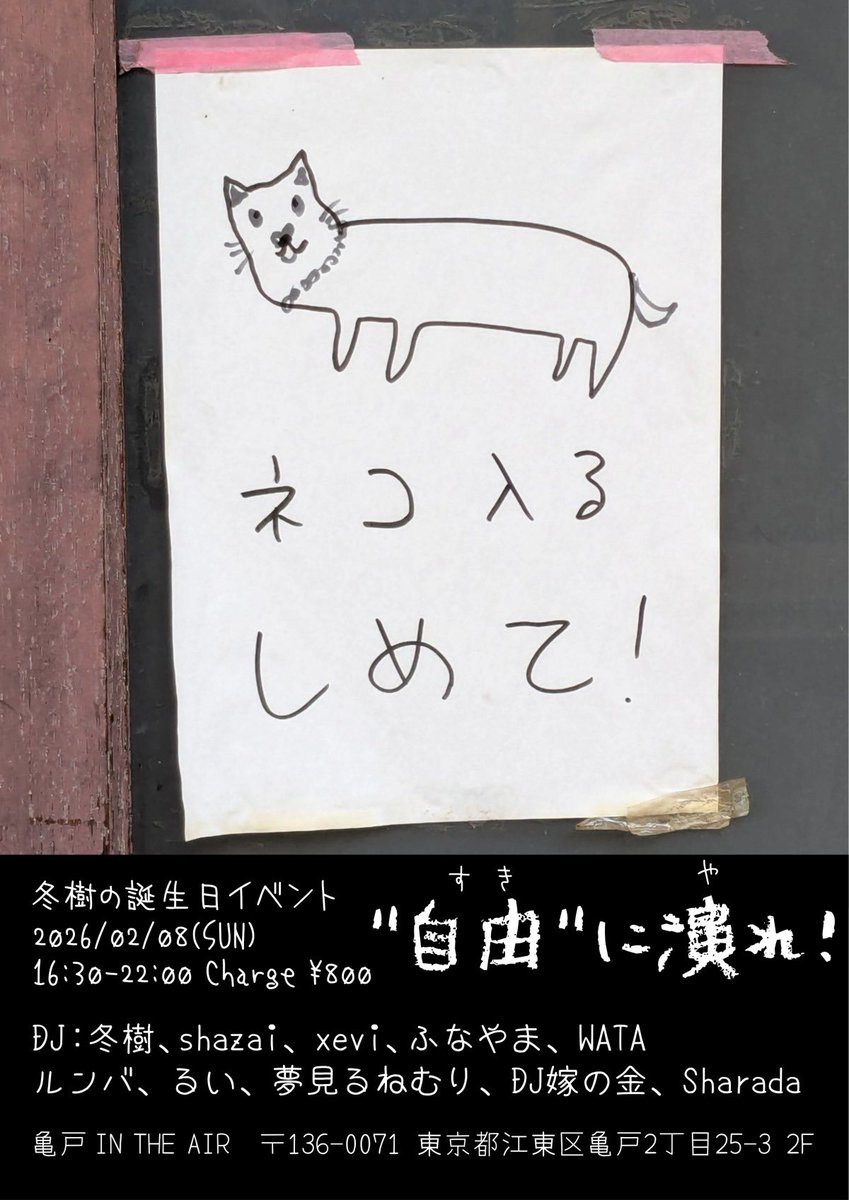 ネコ入る
しめて!
冬樹の誕生日イベント
2026/02/08(SUN)
16:30-22:00 Charge ¥800
すき や
"自由"に演れ!
DJ:冬樹、shazai、xevi、ふなやま、WATA
ルンバ、るい、夢見るねむり、DJ嫁の金、Sharada
亀戸 IN THE AIR 〒136-0071 東京都江東区亀戸2丁目25-3 2F